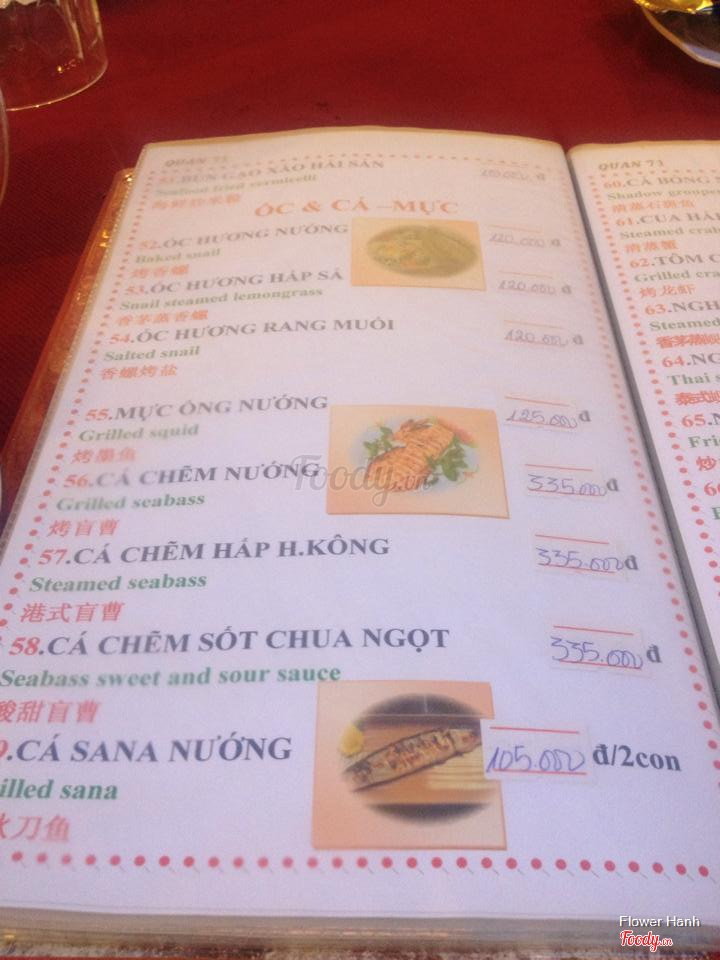 QUAN 71
51.BÚN GẠO XÀO HẢI SẢN
Seafood fried vermicelli
海鲜炒米粉
ỐC & CÁ –MỰC
52.ỐC HƯƠNG NƯỚNG 120.000 đ
Baked snail
烤香螺
53.ỐC HƯƠNG HẤP SẢ 120.000 đ
Snail steamed lemongrass
香茅蒸香螺
54.ỐC HƯƠNG RANG MUỐI 120.000 đ
Salted snail
香螺烤盐
55.MỰC ỐNG NƯỚNG 125.000 đ
Grilled squid
烤墨鱼
56.CÁ CHẼM NƯỚNG 335.000 đ
Grilled seabass
烤盲曹
57.CÁ CHẼM HẤP H.KÔNG 335.000 đ
Steamed seabass
港式盲曹
58.CÁ CHẼM SỐT CHUA NGỌT 335.000 đ
Seabass sweet and sour sauce
酸甜盲曹
9.CÁ SANA NƯỚNG 105.000 đ/2con
illed sana
刀鱼
QUAN 71
60.CÁ BÔNG
Shadow groupe
清蒸石斑鱼
61.CUA HẤ
Steamed crab
清蒸蟹
62.TÔM C
Grilled cra
烤龙虾
63.NGH
Steamed
香茅蒸
64.NG
Thai s
泰式
65.N
Fri
炒
Foody.vn
Flower Hanh
Foody.vn